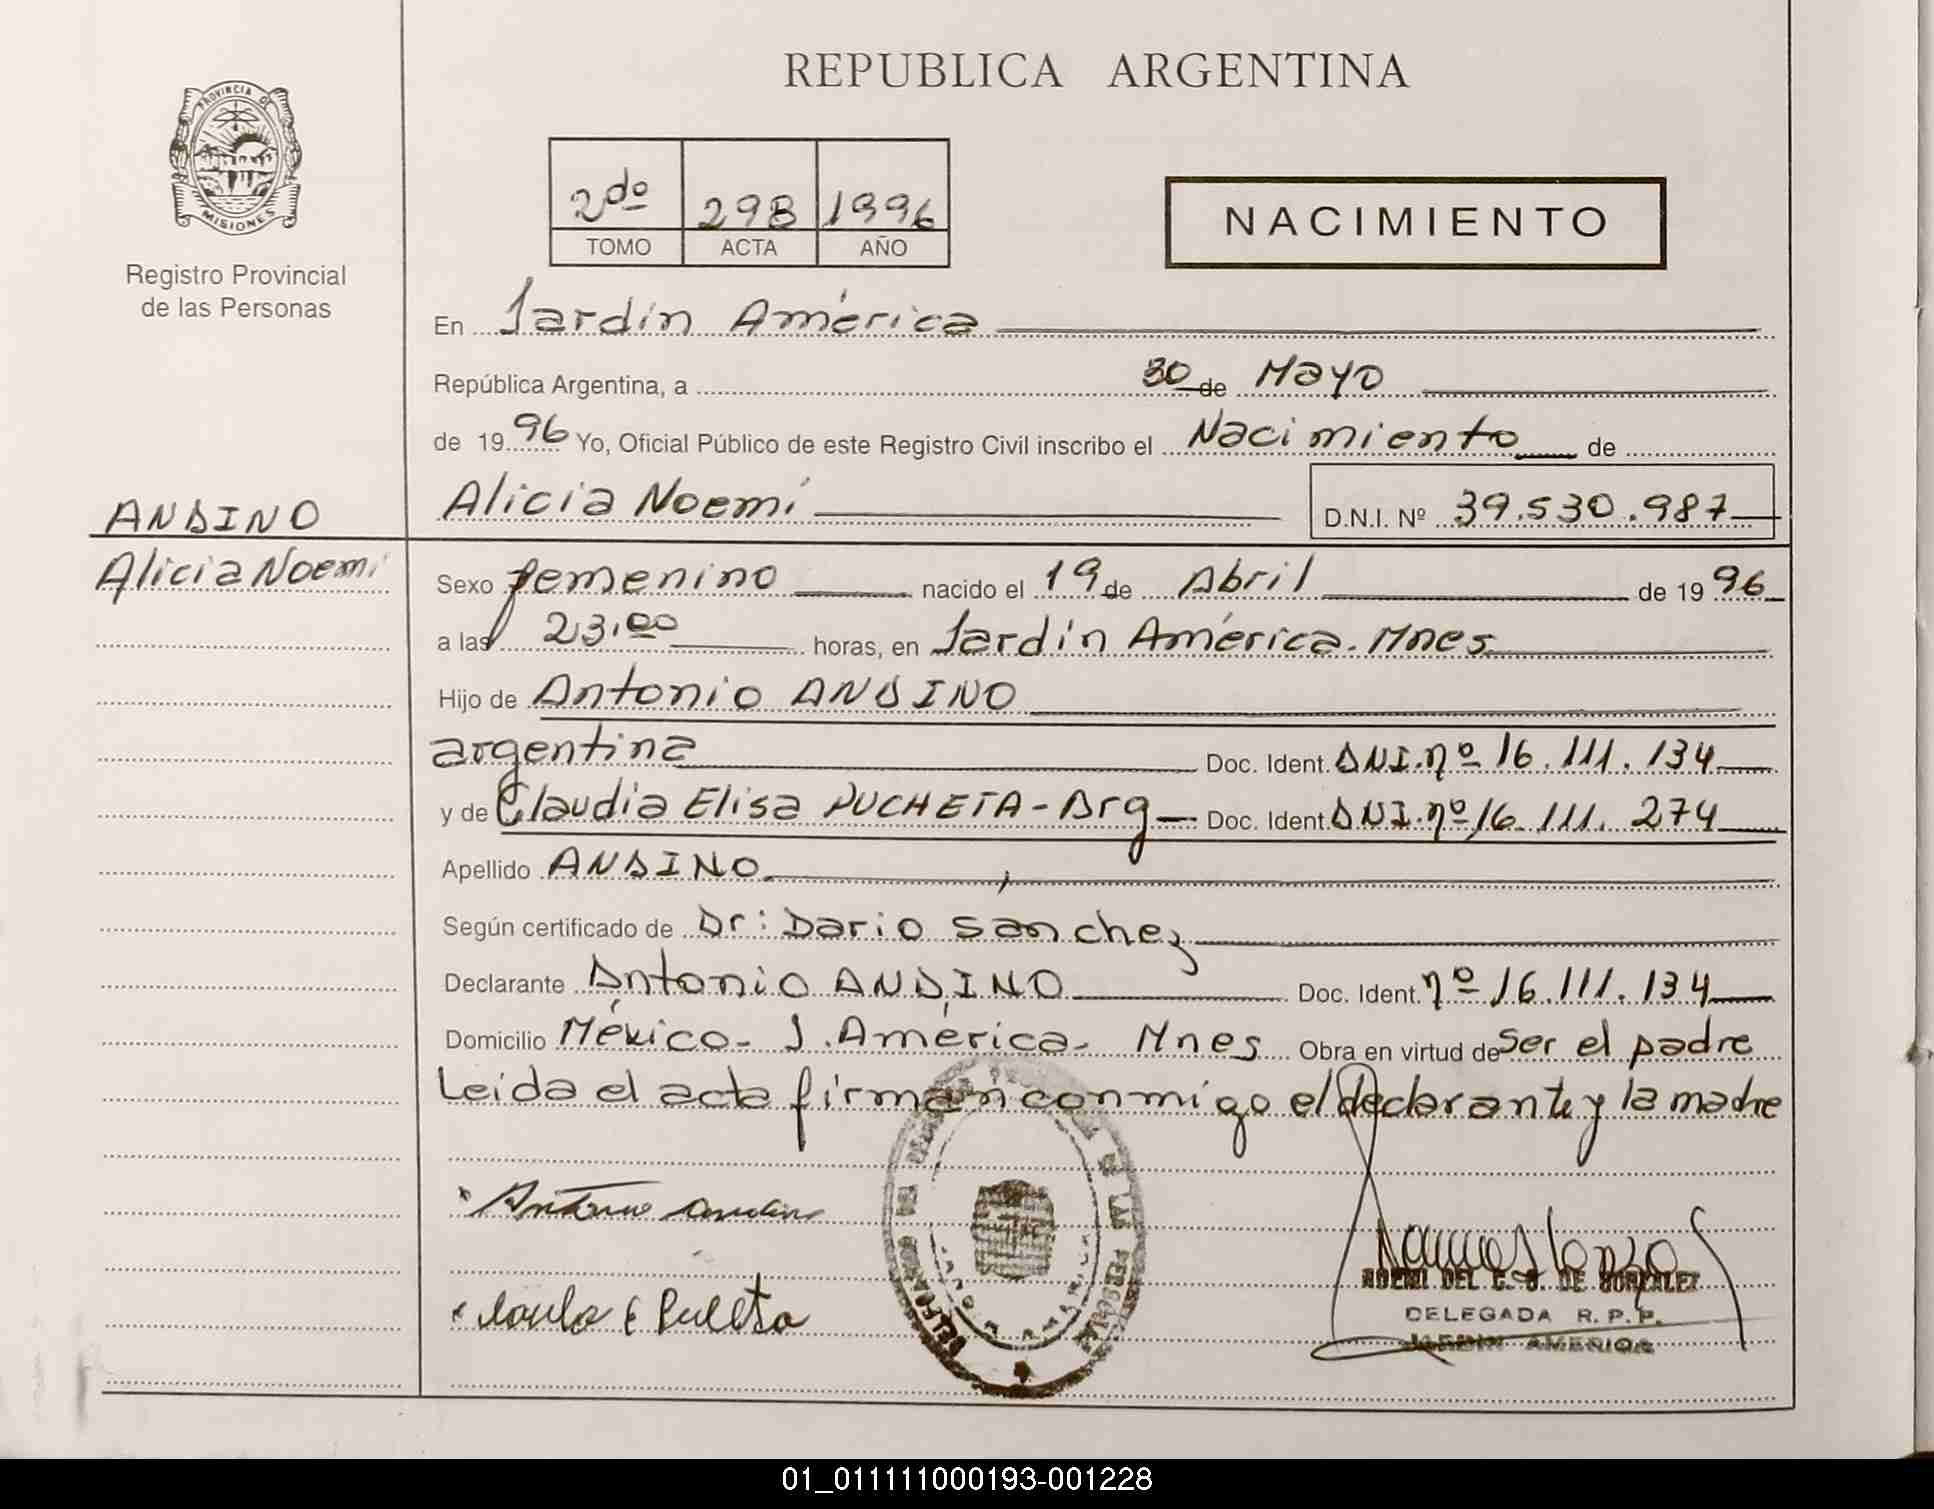 REPUBLICA ARGENTINA
PROVINCIA DE
MISIONES
Registro Provincial
de las Personas
2do 298 1996
TOMO ACTA AÑO
NACIMIENTO
En Jardín América
República Argentina, a 30 de Mayo
de 1996 Yo, Oficial Público de este Registro Civil inscribo el Nacimiento de
Alicia Noemí D.N.I. Nº 39.530.987
ANDINO
Alicia Noemí
Sexo femenino nacido el 19 de Abril de 1996
a las 23,00 horas, en Jardín América. Mnes
Hijo de Antonio ANDINO
argentina Doc. Ident. DNI.nº 16.111.134
y de Claudia Elisa PUCHETA - Arg Doc. Ident. DNI.nº 16.111.274
Apellido ANDINO
Según certificado de Dr: Dario Sanchez
Declarante Antonio ANDINO Doc. Ident. nº 16.111.134
Domicilio México - J. América - Mnes Obra en virtud de ser el padre
Leída el acta firman conmigo el declarante y la madre
Antonio Andino
DE LAS PERSONAS
JARDIN AMERICA
NOEMI DEL C. DE GONZALEZ
DELEGADA R.P.P.
JARDIN AMERICA
01_011111000193-001228